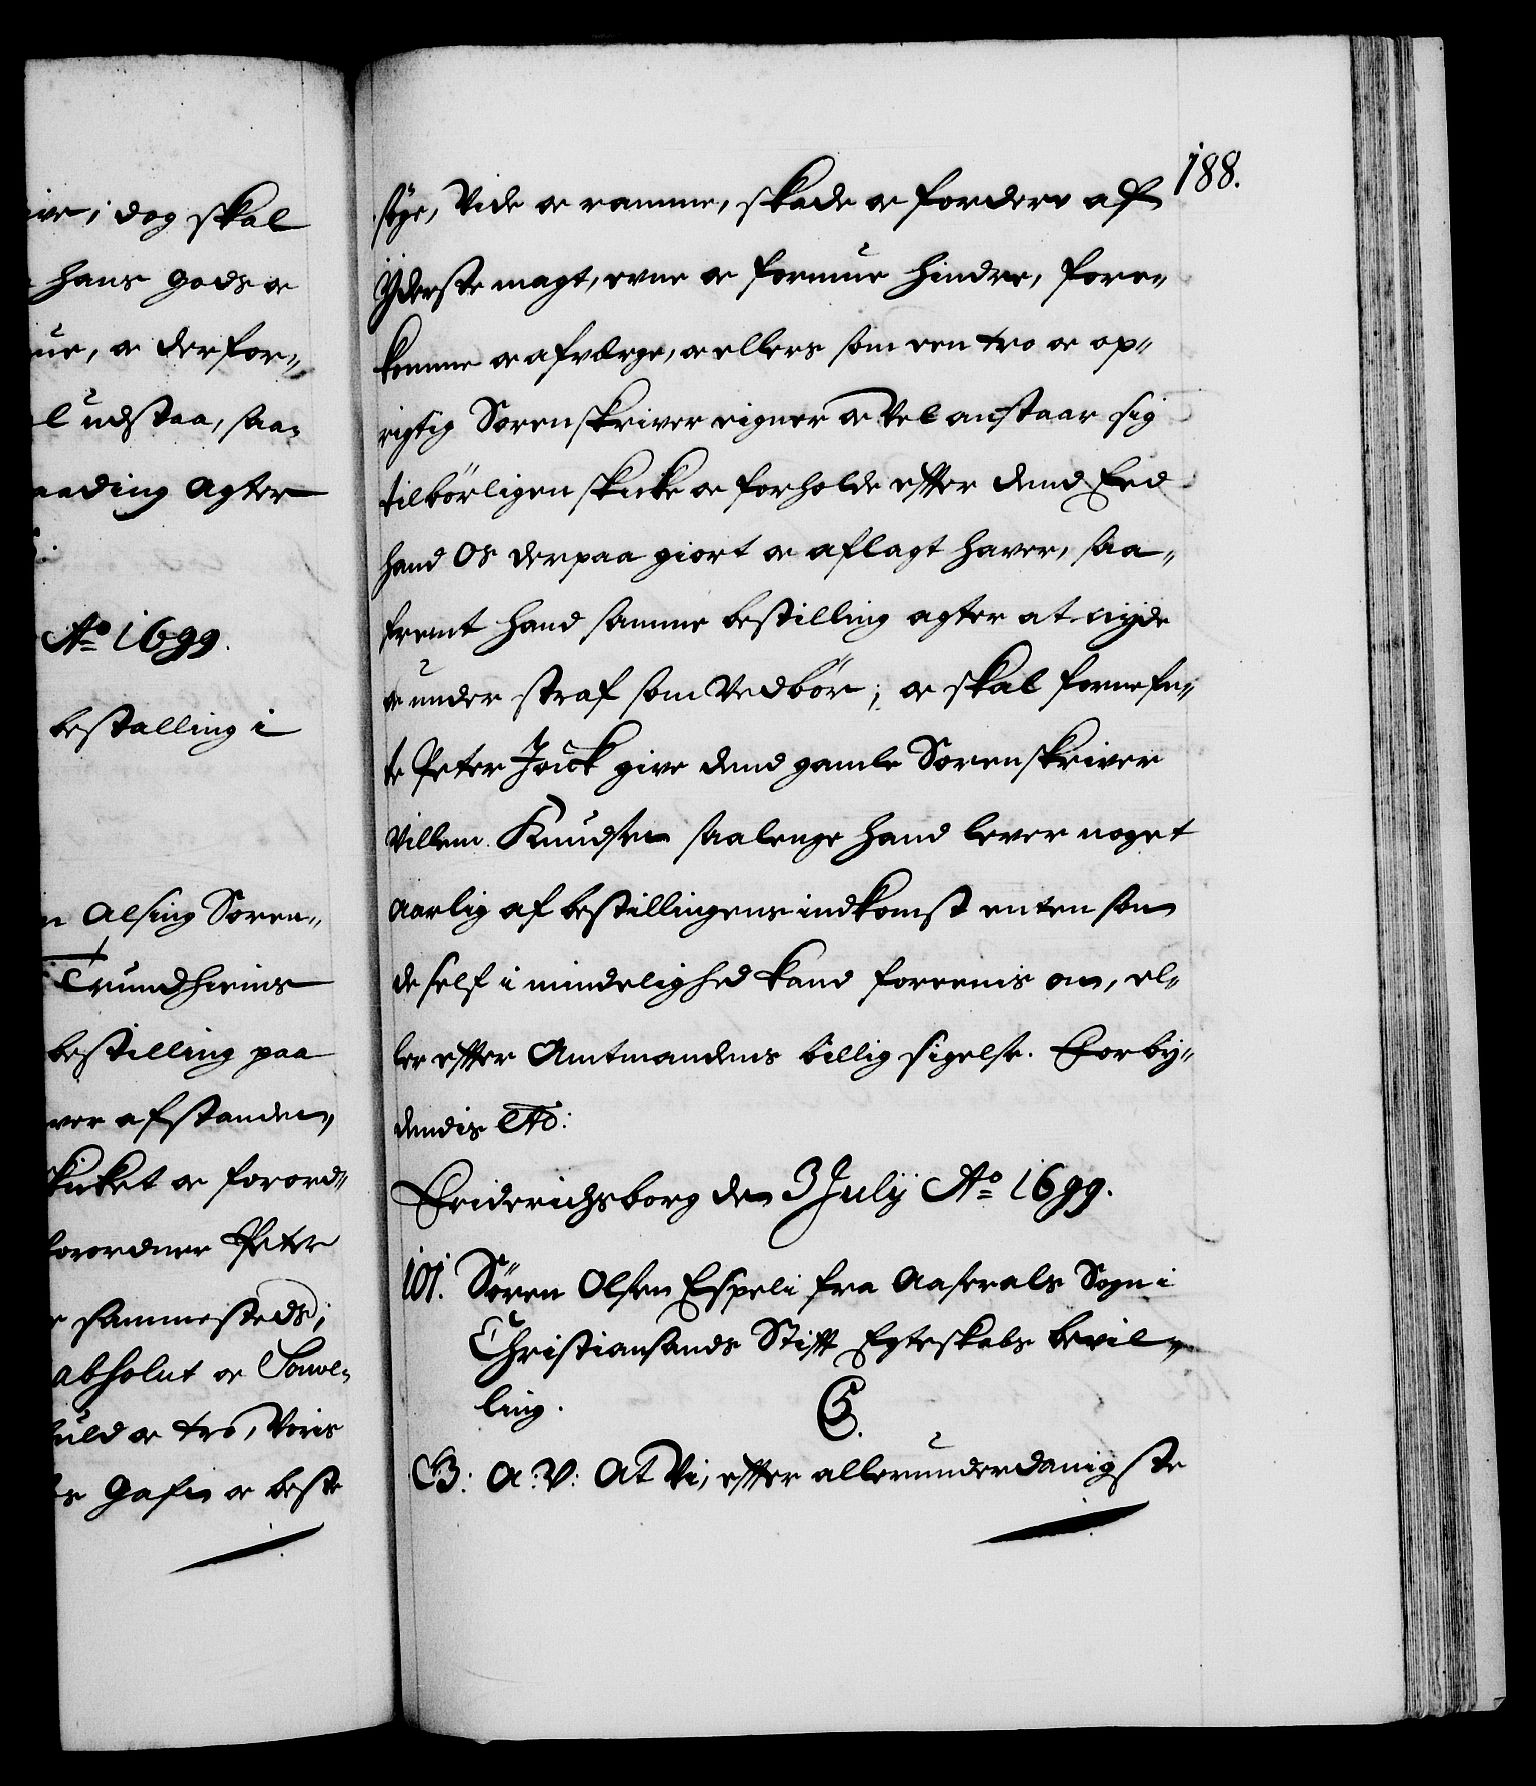 ive; dog skal
hans gods oc
ue, oc derfor-
l udstaa, saa-
aading Agter
Ao 1699.
bestalling i
n Alsing Soren-
Trundhiems
bestilling paa
ver afstanden,
kicket oc forord-
forordner Peter
e sammesteds;
absolut oc Souve-
huld oc tro, Voris
s gafn oc beste
188.
söge, Vide oc ramme, skade oc fordere af
Yderste magt, evne oc formue hindre, fore-
komme oc afverge, oc ellers som een tro oc op-
rigtig Sorenskriver eigner oc Vel anstaar sig
tilbörligen skicke oc forholde effter dend Eed
hand Os derpaa giort oc aflagt haver, saa-
fremt hand samme bestilling agter at nyde
oc under straf som Vedbör; oc skal fornefn-
te Peter Jack give dend gamle Sorenskriver
Villem Knudsen saalenge hand lever noget
aarlig af bestillingens indkomst enten som
de self i mindelighed kand foreenis om, el-
ler effter Amtmandens billig sigelse. Forby-
dendis etc:
Friderichsborg den 3 July Ao 1699.
101. Sören Olsen Espeli fra Aaserals Sogn i
Christiansands Stifft Egteskabs bevil-
ling.
C5.
G: A: V: At Vi, effter allerunderdanigste